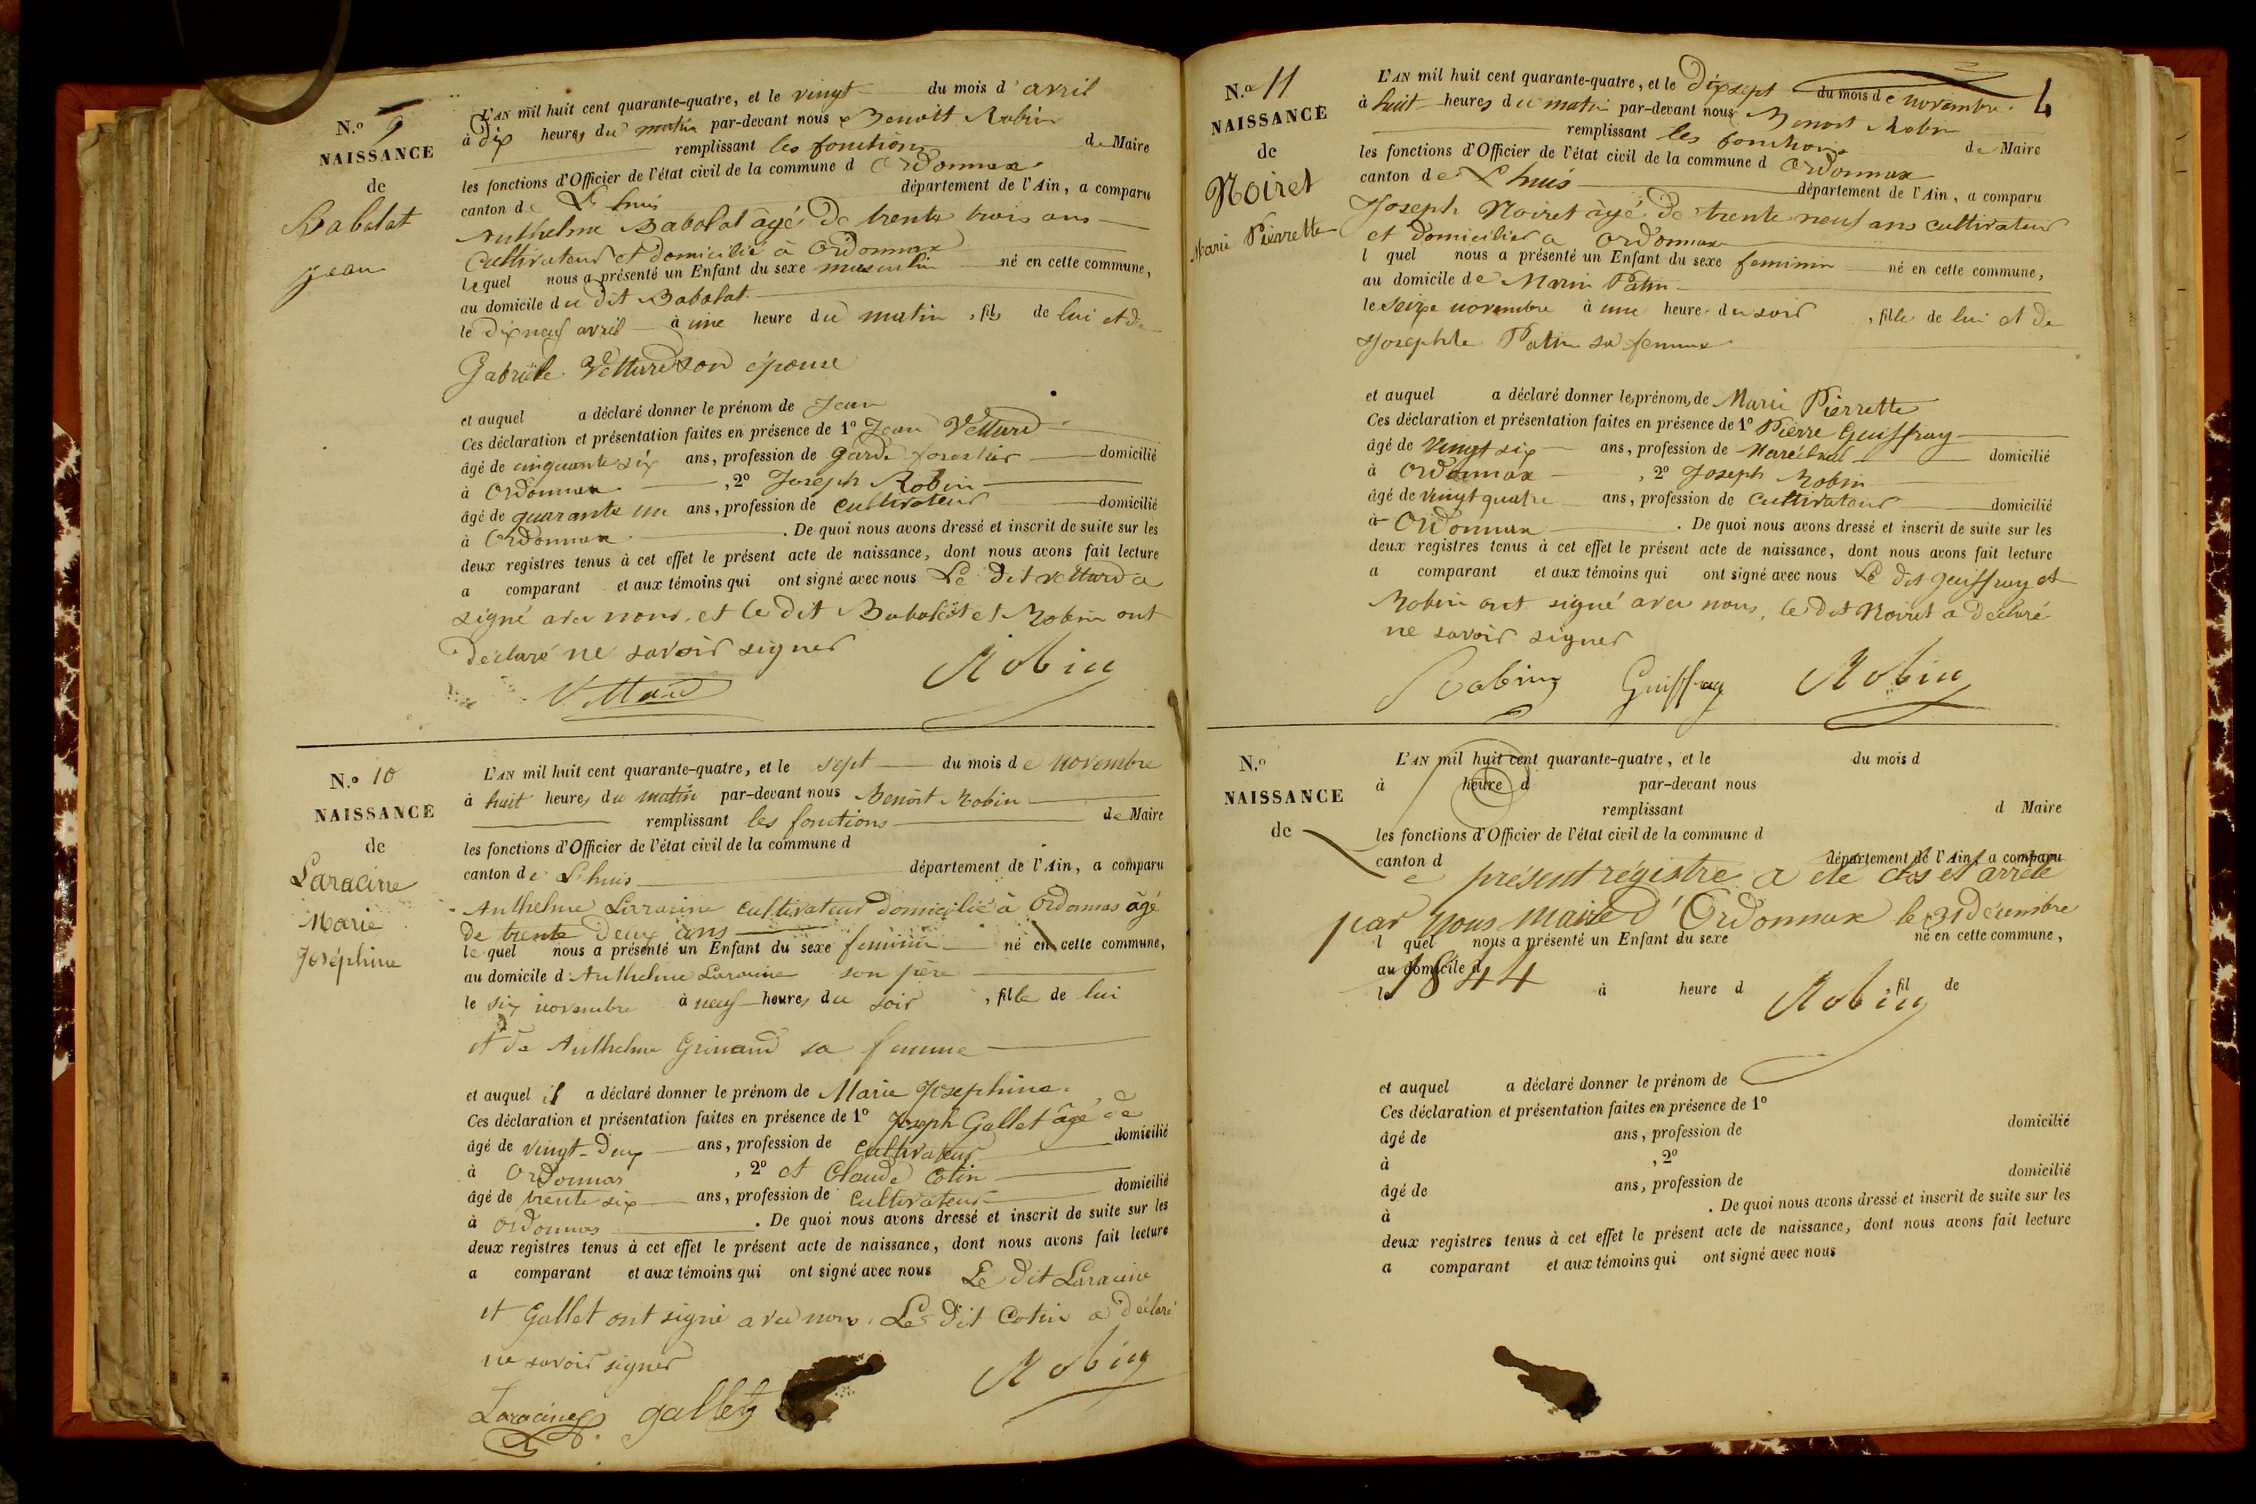 N.o 9
NAISSANCE
de
Babolat
Jean
L'AN mil huit cent quarante-quatre, et le vingt du mois d'avril
à Dix heures du matin par-devant nous Benoit Robin
remplissant les fonctions de Maire
les fonctions d'Officier de l'état civil de la commune d Ordonnax
canton de L'huis département de l'Ain, a comparu
Anthelme Babolat âgé de trente trois ans
Cultivateur et domicilié à Ordonnax
lequel nous a présenté un Enfant du sexe masculin né en cette commune,
au domicile du dit Babolat
le dix neuf avril à une heure du matin, fils de lui et de
Gabriele Vettard son épouse
et auquel a déclaré donner le prénom de Jean
Ces déclaration et présentation faites en présence de 1o Jean Vettard
âgé de cinquante six ans, profession de garde forestier domicilié
à Ordonnax, 2o Joseph Robin
âgé de quarante un ans, profession de cultivateur domicilié
à Ordonnax. De quoi nous avons dressé et inscrit de suite sur les
deux registres tenus à cet effet le présent acte de naissance, dont nous avons fait lecture
a comparant et aux témoins qui ont signé avec nous Le dit Vettard a
signé avec nous, et le dit Babolat et Robin ont
déclaré ne savoir signer
Vettard Robin
N.o 10
NAISSANCE
de
Laracine
Marie
Joséphine
L'AN mil huit cent quarante-quatre, et le sept du mois de novembre
à huit heures du matin par-devant nous Benoit Robin
remplissant les fonctions de Maire
les fonctions d'Officier de l'état civil de la commune d
canton de L'huis département de l'Ain, a comparu
Anthelme Larracine cultivateur domicilié à Ordonnas âgé
de trente deux ans
lequel nous a présenté un Enfant du sexe feminin né en cette commune,
au domicile d'Anthelme Laracine son père
le six novembre à neuf heures du soir, fille de lui
et de Anthelme Grinand sa femme
et auquel il a déclaré donner le prénom de Marie Josephine
Ces déclaration et présentation faites en présence de 1o Joseph Gallet âgé de
âgé de vingt-deux ans, profession de cultivateur domicilié
à Ordonnas, 2o et Claude Cotin
âgé de trente six ans, profession de cultivateur domicilié
à Ordonnas. De quoi nous avons dressé et inscrit de suite sur les
deux registres tenus à cet effet le présent acte de naissance, dont nous avons fait lecture
a comparant et aux témoins qui ont signé avec nous Le dit Laracine
et Gallet ont signé avec nous. Le dit Cotin a déclaré
ne savoir signer
Robin
Laracine gallet
N.o 11
NAISSANCE
de
Noiret
Marie Pierrette
4
L'AN mil huit cent quarante-quatre, et le Dix sept du mois de novembre
à huit heures du matin par-devant nous Benoit Robin
remplissant les fonctions de Maire
les fonctions d'Officier de l'état civil de la commune d Ordonnax
canton de L'huis département de l'Ain, a comparu
Joseph Noiret âgé de trente neuf ans cultivateur
et domicilier a Ordonnax
l quel nous a présenté un Enfant du sexe feminin né en cette commune,
au domicile de Marin Patin
le Seize novembre à une heure du soir, fille de lui et de
Josephte Patin sa femme
et auquel a déclaré donner les prénom, de Marie Pierrette
Ces déclaration et présentation faites en présence de 1o Pierre Guiffray
âgé de vingt six ans, profession de Maréchal domicilié
à Ordonnax, 2o Joseph Robin
âgé de vingt quatre ans, profession de cultivateur domicilié
à Ordonnax. De quoi nous avons dressé et inscrit de suite sur les
deux registres tenus à cet effet le présent acte de naissance, dont nous avons fait lecture
a comparant et aux témoins qui ont signé avec nous Le dit Guiffray et
Robin ont signé avec nous, le dit Noiret a déclaré
ne savoir signer
Robin Guiffray Robin
N.o
NAISSANCE
de
L'AN mil huit cent quarante-quatre, et le du mois d
à heure d par-devant nous
remplissant d Maire
les fonctions d'Officier de l'état civil de la commune d
canton d département de l'Ain, a comparu
Le présent régistre a été clos et arrêté
par nous maire d'Ordonnax le 31 décembre
l quel nous a présenté un Enfant du sexe né en cette commune,
au domicile d
1844
le à heure d, fil de
Robin
et auquel a déclaré donner le prénom de
Ces déclaration et présentation faites en présence de 1o
âgé de ans, profession de domicilié
à, 2o
âgé de ans, profession de domicilié
à. De quoi nous avons dressé et inscrit de suite sur les
deux registres tenus à cet effet le présent acte de naissance, dont nous avons fait lecture
a comparant et aux témoins qui ont signé avec nous